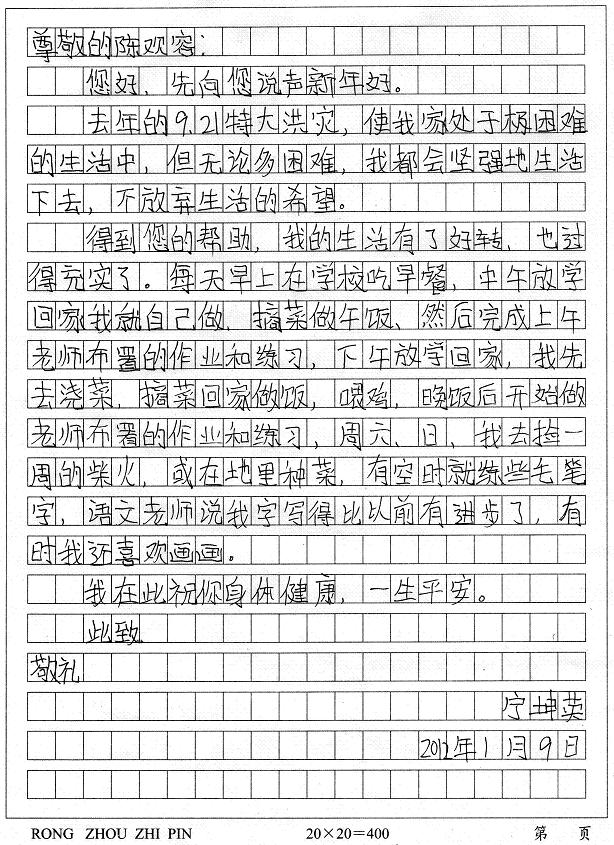 尊敬的陈欢容：
您好，先向您说声新年好。
去年的9.21特大洪灾，使我家处于极困难
的生活中，但无论多困难，我都会坚强地生活
下去，不放弃生活的希望。
得到您的帮助，我的生活有了好转，也过
得充实了。每天早上在学校吃早餐，中午放学
回家我就自己做，摘菜做午饭、然后完成上午
老师布置的作业和练习，下午放学回家，我先
去浇菜，摘菜回家做饭，喂鸡，晚饭后开始做
老师布署的作业和练习，周六、日，我去捡一
周的柴火，或在地里种菜，有空时就练些毛笔
字，语文老师说我字写得比以前有进步了，有
时我还喜欢画画。
我在此祝你身体健康，一生平安。
此致
敬礼
宁坤英
2012年1月9日
RONG ZHOU ZHI PIN 20×20=400 第 页